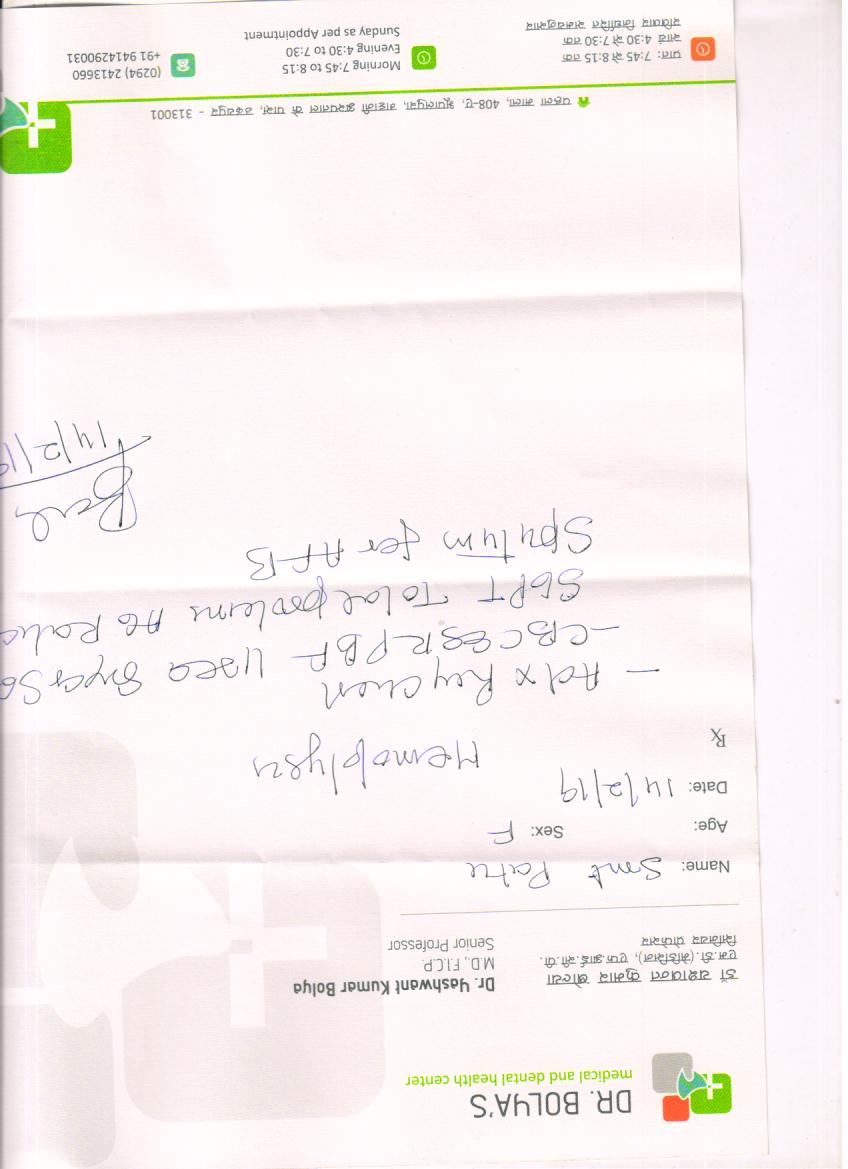 DR. BOLYA'S
medical and dental health center
डॉ यशवन्त कुमार बोल्या
एम.डी.(मेडिसिन), एफ.आई.सी.पी.
सिनियर प्रोफेसर
Dr. Yashwant Kumar Bolya
M.D., F.I.C.P.
Senior Professor
Name: Smt
Age: Sex: F
Date: 14/2/19
Rx
Hemoptysis
- Adv X Ray Chest
- CBC ESR PBF Urea
SGPT Total proteins AG Ratio
Sputum for AFB
14/2/19
पहला माला, 408-ए, भूपालपुरा, शास्त्री के पास, उदयपुर - 313001
प्रातः 7:45 से 8:15 तक
सायं 4:30 से 7:30 तक
रविवार निर्धारित समयानुसार
Morning 7:45 to 8:15
Evening 4:30 to 7:30
Sunday as per Appointment
(0294) 2413660
+91 9414290031